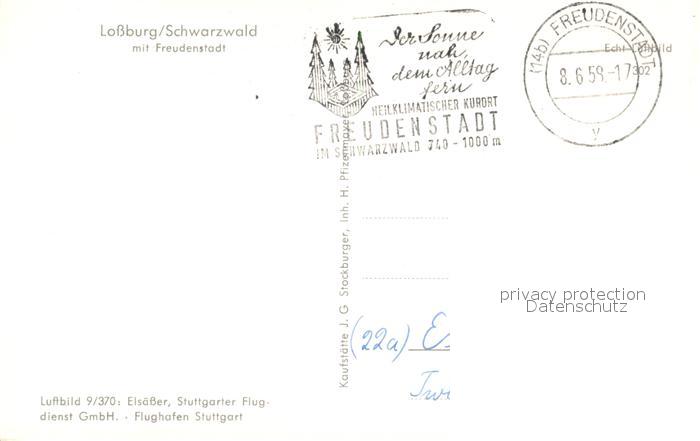 Loßburg/Schwarzwald
mit Freudenstadt
Der Sonne
nah,
dem Alltag
fern
HEILKLIMATISCHER KURORT
FREUDENSTADT
IM SCHWARZWALD 740-1000 m
(14b) FREUDENSTADT
8.6.58.-17
y
Echt Luftbild
302
Kaufstätte J. G Stockburger, Inh. H. Pfizenmayer, Loßburg
privacy protection
Datenschutz
(22a) E
Luftbild 9/370: Elsäßer, Stuttgarter Flug-
dienst GmbH. · Flughafen Stuttgart